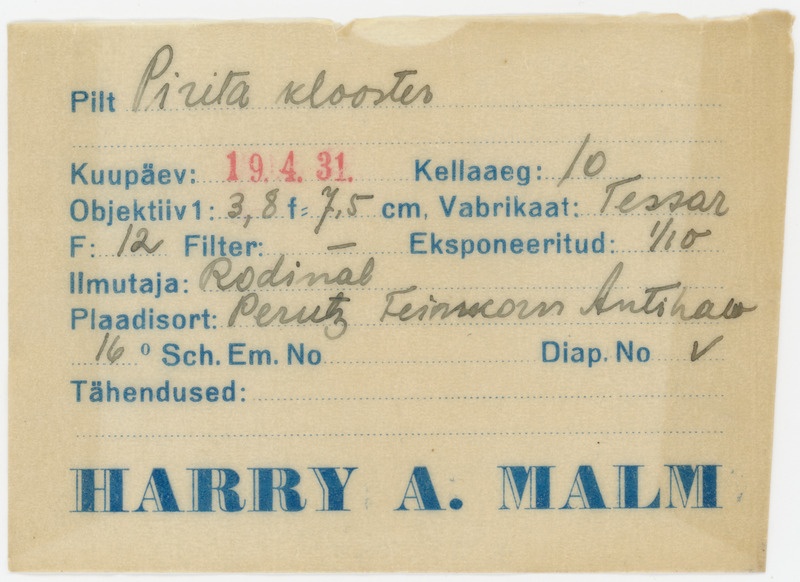 Pilt Pirita klooster
Kuupäev: 19. 4. 31. Kellaaeg: 10
Objektiiv 1: 3,8 f= 7,5 cm, Vabrikaat: Tessar
F: 12 Filter: —
Eksponeeritud: 1/10
Ilmutaja: Rodinal
Plaadisort: Perutz Feinkorn Antihalo
16 ° Sch. Em. No Diap. No √
Tähendused:
HARRY A. MALM